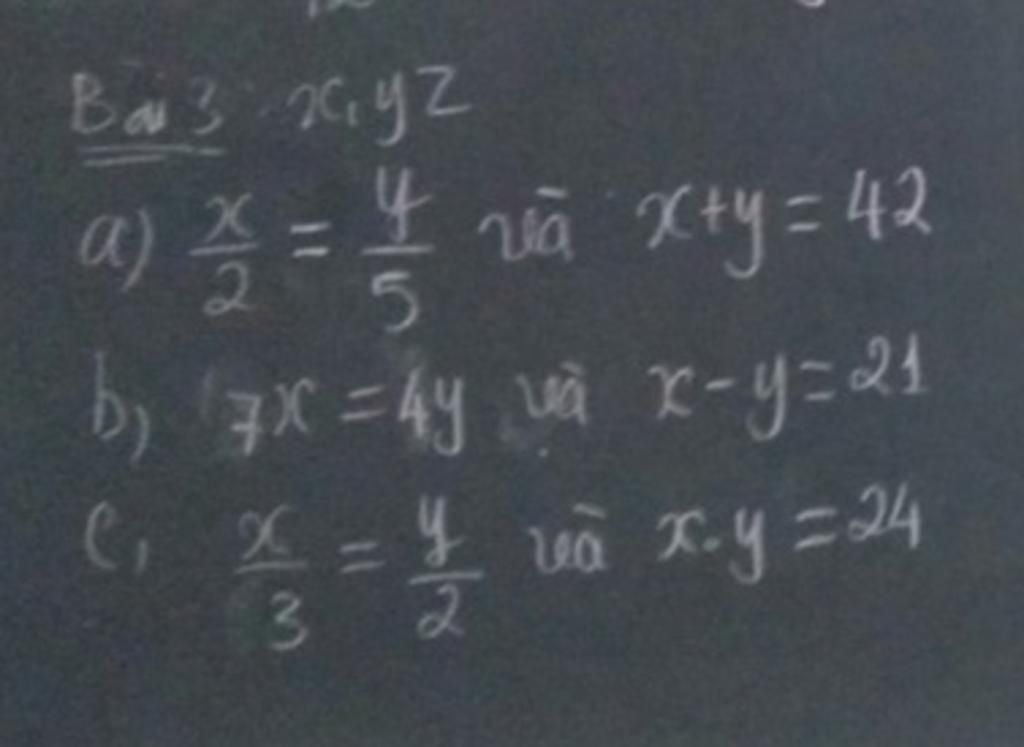 Bài 3: x, y z
a) x/2 = y/5 và x+y = 42
b, 7x = 4y và x - y = 21
c, x/3 = y/2 và x.y = 24